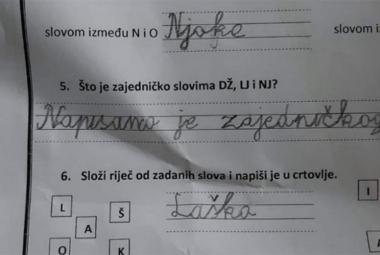 slovom između N i O Njoke slovom i
5. Što je zajedničko slovima DŽ, LJ i NJ?
Napisano je zajedničkog
6. Složi riječ od zadanih slova i napiši je u crtovlje.
I
L Š Laško
A
O K A